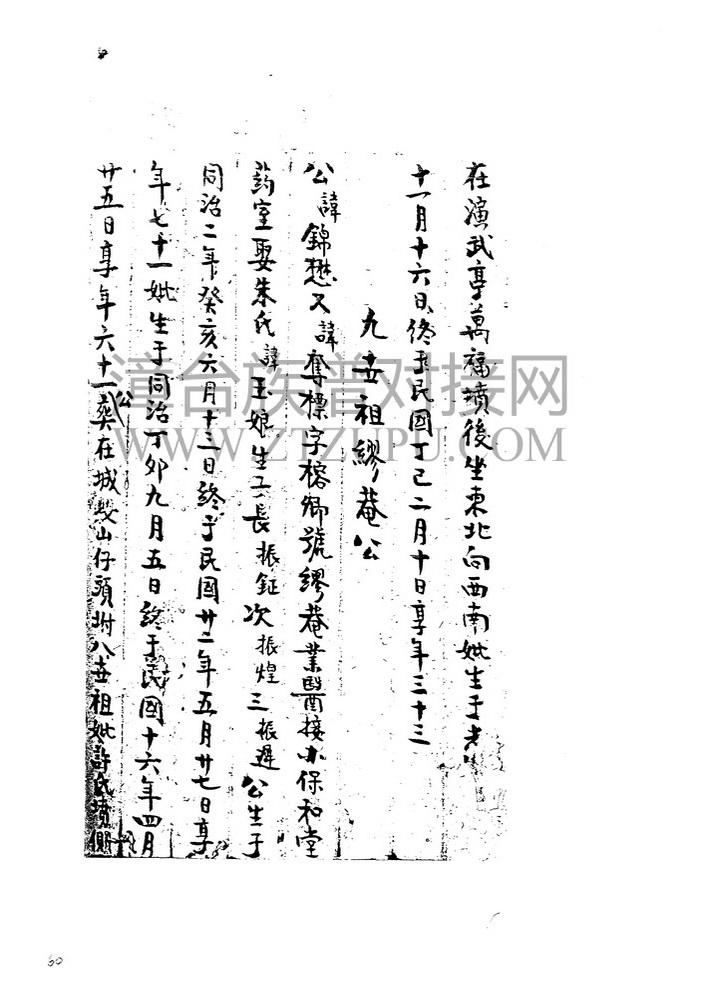 在演武亭萬福墳後坐東北向西南妣生于光
十一月十六日終于民國丁巳二月十日享年三十三
九世祖繆菴公
公諱錦懋又諱奪標字榕鄉號繆菴業醫接小保和堂
药室娶朱氏諱玉娘生三長振鉦次振煌三振遲公生于
同治二年癸亥六月十三日終于民國廿二年五月廿七日享
年七十一妣生于同治丁卯九月五日終于民國十六年四月
廿五日享年六十一公葬在城 山仔頭坿八世祖妣許氏墳側
漳台族谱对接网
WWW.ZTZUPU.COM
60